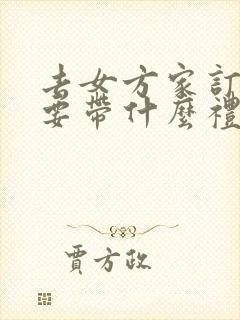 去女方家訂
要帶什麼禮
賈方政